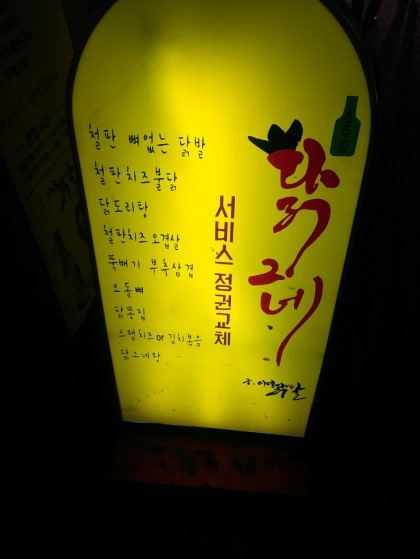 철판 뼈없는 닭발
철판치즈불닭
닭도리탕
철판치즈 오겹살
뚝배기 부추삼겹
오돌뼈
닭똥집
스팸치즈 or 김치볶음
닭그네탕
서비스 정권교체
닭그네